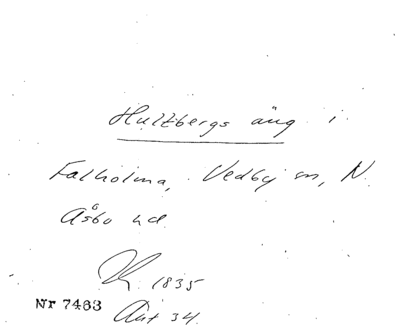 Hultbergs äng i
Falholma, Vedby sn, N.
Åsbo hd
K. 1835
Akt 34.
Nr 7463